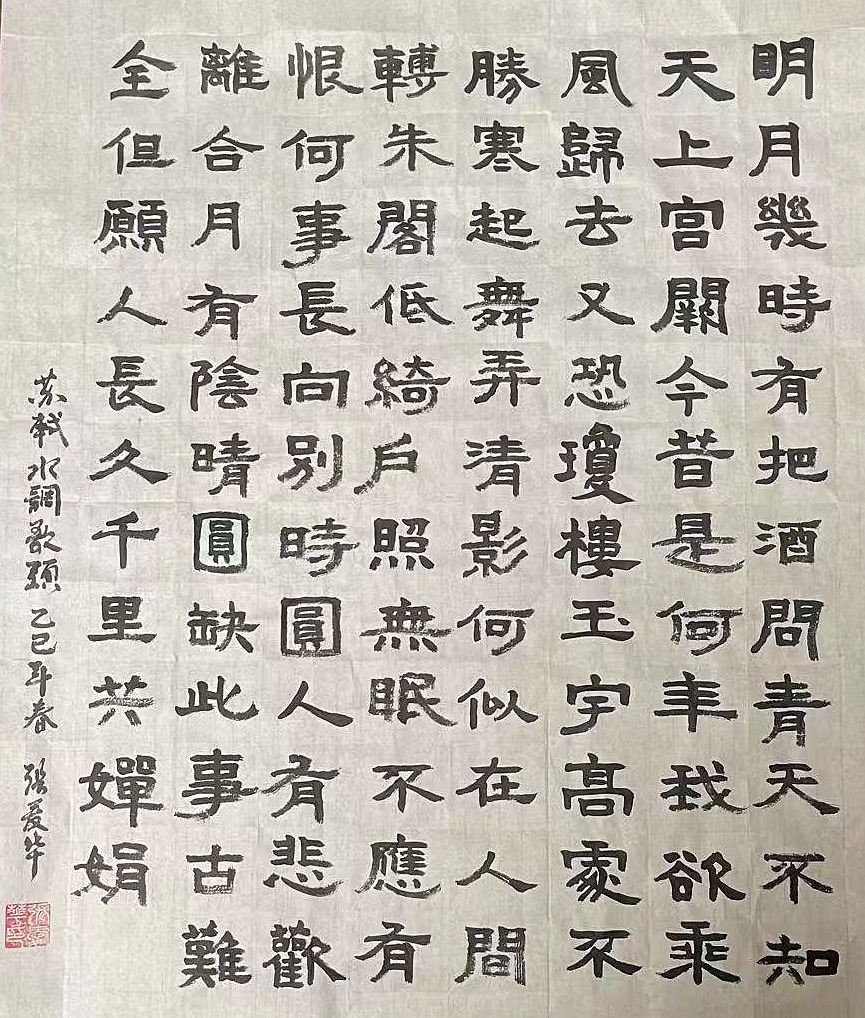 明月幾時有把酒問青天不知
天上宮闕今昔是何年我欲乘
風歸去又恐瓊樓玉宇高處不
勝寒起舞弄清影何似在人間
轉朱閣低綺戶照無眠不應有
恨何事長向別時圓人有悲歡
離合月有陰晴圓缺此事古難
全但願人長久千里共嬋娟
苏軾水調歌頭 乙巳年春 張爱华